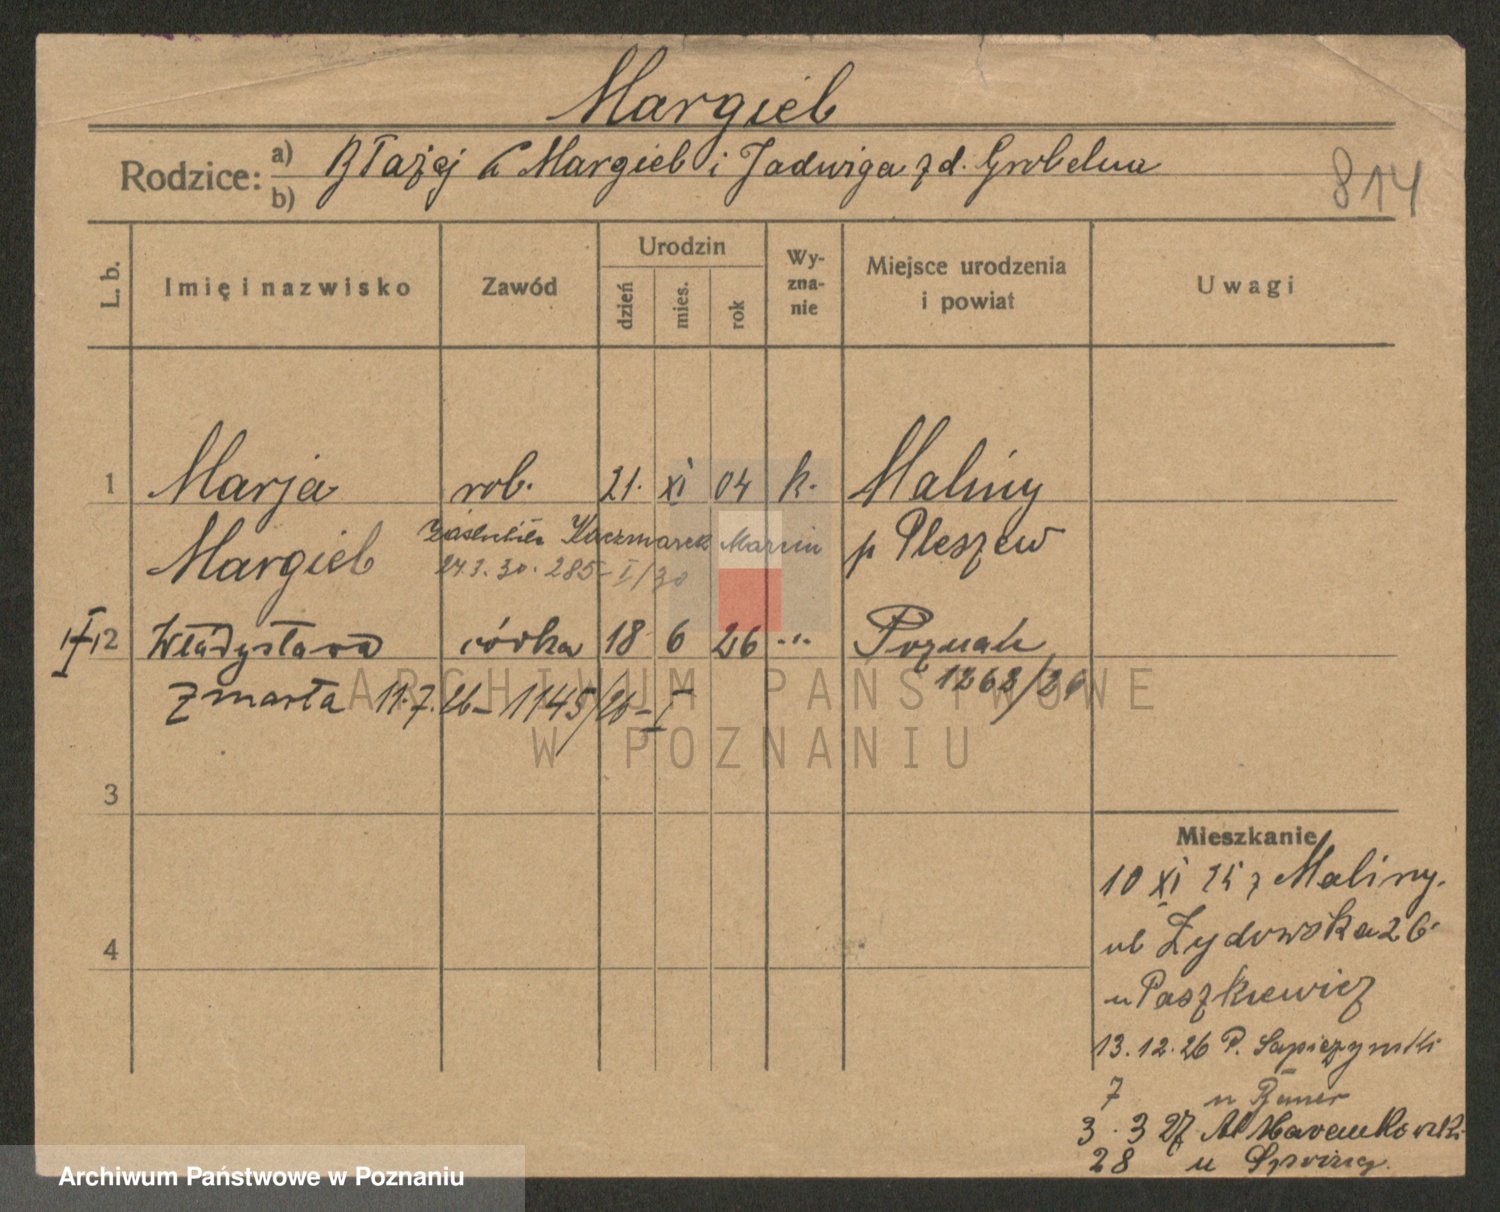 Margieb
Rodzice: a) b) Błażej Margieb i Jadwiga z d. Grobelna
814
L. b. Imię i nazwisko Zawód Urodzin dzień mies. rok Wyznanie Miejsce urodzenia i powiat Uwagi
1 Marja rob. 21. XI 04 k. Maliny
Margieb p Pleszew
Kaczmarek Marcin
24.3.30. 285 - I/30
2 Władysława córka 18 6 26 -"- Poznań
1268/26
Zmarła 11.7.26 - 1145/26 - I
3
4
Mieszkanie
10 XI 25 z Maliny.
ul Żydowska 26
u Paszkiewicz
13.12.26 P. Sapieżyński
7 u
3.3 27 Al Marcinkowski
28 u
ARCHIWUM PAŃSTWOWE
W POZNANIU
Archiwum Państwowe w Poznaniu